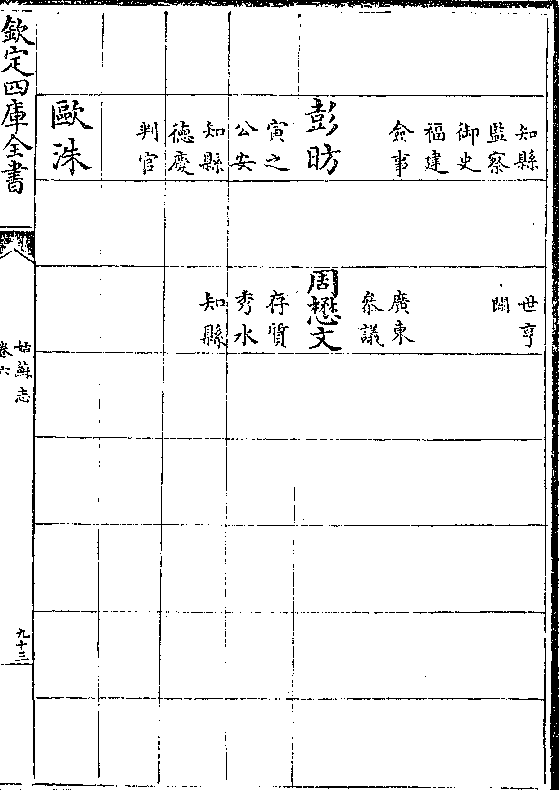 知縣
監察
御史
福建
僉事
彭昉
寅之
公安
知縣
德慶
判官
歐洙
世亨
閩
廣東
叅議
周懋文
存質
秀水
知縣
欽定四庫全書
姑蘇志
卷六
九十三